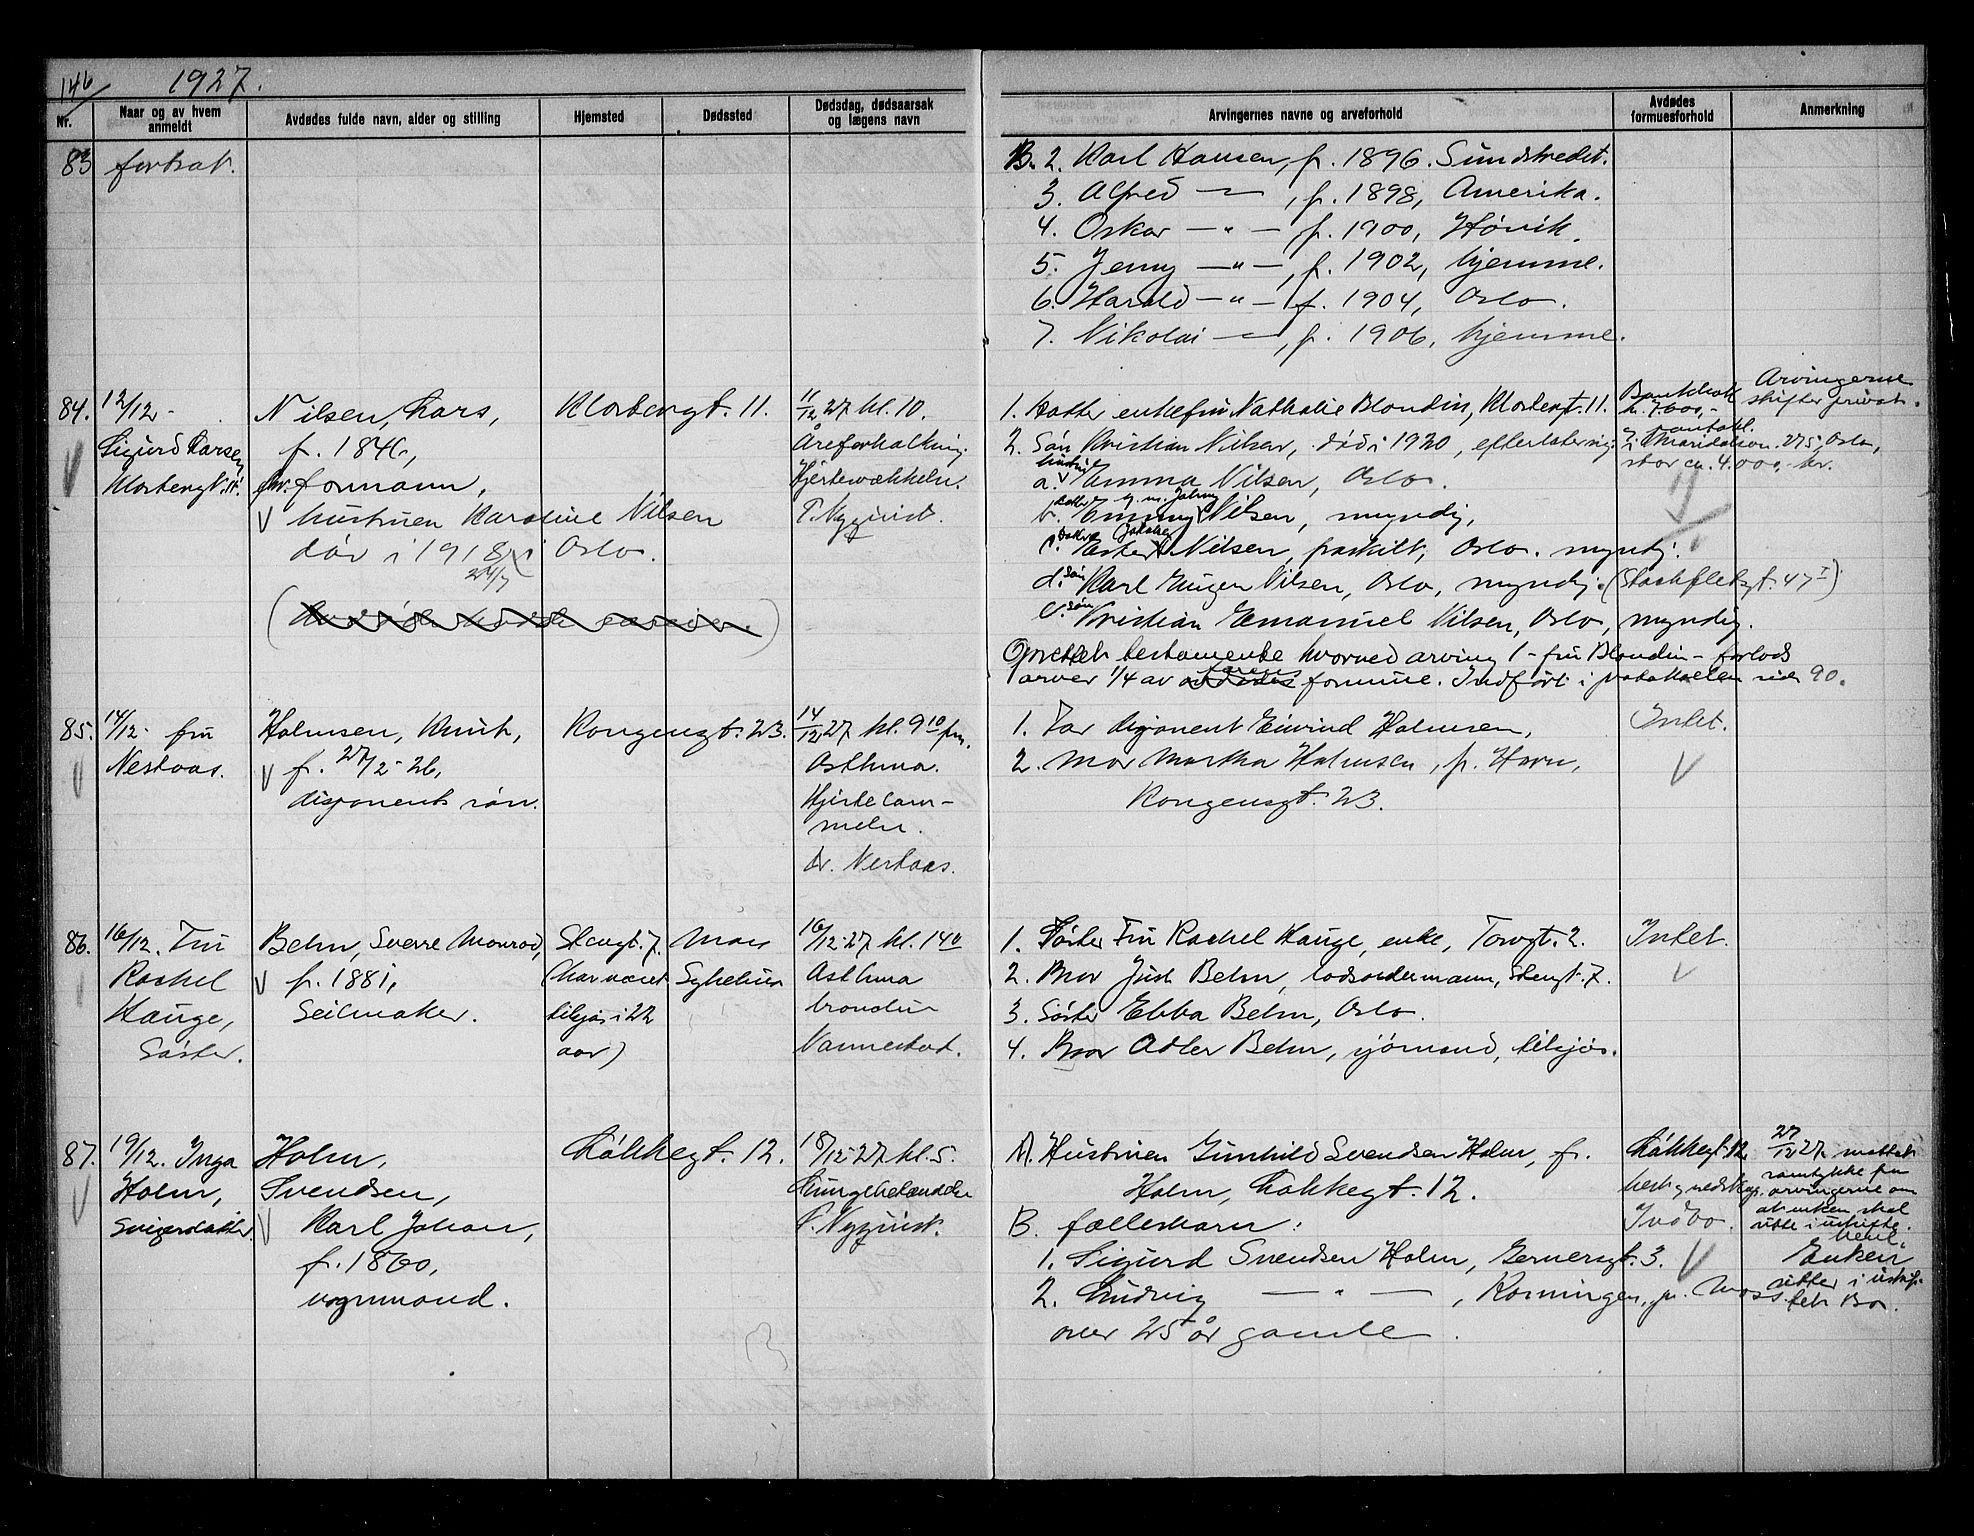 146
1927.
Nr.
Naar og av hvem anmeldt
Avdødes fulde navn, alder og stilling
Hjemsted
Dødssted
Dødsdag, dødsaarsak og lægens navn
Arvingernes navne og arveforhold
Avdødes formuesforhold
Anmerkning
83 fortsat.
B. 2. Karl Hansen, f. 1896. Sundstredet.
3. Alfred — , f. 1898, Amerika.
4. Oskar — " — f. 1900, Høvik.
5. Jenny — " —, f. 1902, hjemme.
6. Harald — " — f. 1904, Oslo.
7. Nikolai —, f. 1906, hjemme.
84. 12/12 -
Sigurd Larsen
Klostergt. 11.
Nilsen, Lars,
f. 1846,
fhv. formann,
V hustruen Karoline Nilsen
død i 1918 i Oslo.
24/7
Klostergt. 11.
11/12 27 kl. 10.
Åreforkalkning.
Hjertesvækkelse.
P. Nyquist.
1. Datter enkefru Nathalie Blondin, Klostergt. 11.
2. Søn Kristian Nilsen, død i 1920, efterlater sig:
hustru
a. Emma Nilsen, Oslo.
datter
b. Emmy Nilsen, myndig,
datter
c. Ester Nilsen, fraskilt, Oslo. myndig.
d. søn Karl Eugen Nilsen, Oslo, myndig. (Stockfletsgt. 47 I)
e. søn Kristian Emanuel Nilsen, Oslo, myndig.
Oprettet testamente hvorved arving 1 - fru Blondin - forlods
arver 1/4 av formue. Indført i protokollen side 90.
Bankbok
k. 7600,-
i Maridalsvn. 275, Oslo,
stor ca. 4.000,- kr.
Arvingerne
skifter privat.
85. 14/12 - fru
Nestaas.
Holmsen, Knut,
V f. 27/2 - 26,
disponents søn.
Kongensgt. 23.
14/12 27 kl. 9 10 fm.
Asthma.
Hjertelam-
melse.
Dr. Nestaas.
1. Far disponent Eivind Holmsen,
2. Mor Martha Holmsen, f. Horn,
Kongensgt. 23.
Intet.
V
86. 16/12. Fru
Rachel
Hauge,
Søster.
Behn, Sverre Monrad,
V f. 1881,
Seilmaker.
Stengt. 7.
(har været
tilsjøs i 22
aar)
Moss
Sykehus
16/12 - 27 kl. 1 40
Asthma
bronchiale
Vannestad.
1. Søster Fru Rachel Hauge, enke, Torvgt. 2.
2. Bror Just Behn, lodsoldermann, Stengt. 7.
3. Søster Ebba Behn, Oslo.
4. Bror Adler Behn, sjømand, tilsjøs.
Intet.
V
87. 19/12. Inga
Holm,
Svigerdatter.
Holm,
Svendsen,
V Karl Johan,
f. 1860,
vognmand.
Løkkegt. 12.
18/12 - 27 kl. 5.
Lungebetændelse
P. Nyquist.
A. Hustruen Gunhild Svendsen Holm, f.
Holm, Løkkegt. 12.
B. fællesbarn:
1. Sigurd Svendsen Holm, Gernersgt. 3.
2. Ludvig — " — , Rosningen, pr. Moss
over 25 år gamle.
Løkkegt. 12
hest og redskap.
Indbo.
V
27/12 27 mottat
samtykke fra
arvingerne om
at enken skal
sitte i uskifte.
Enken
sitter i uskif-
tet Bo.